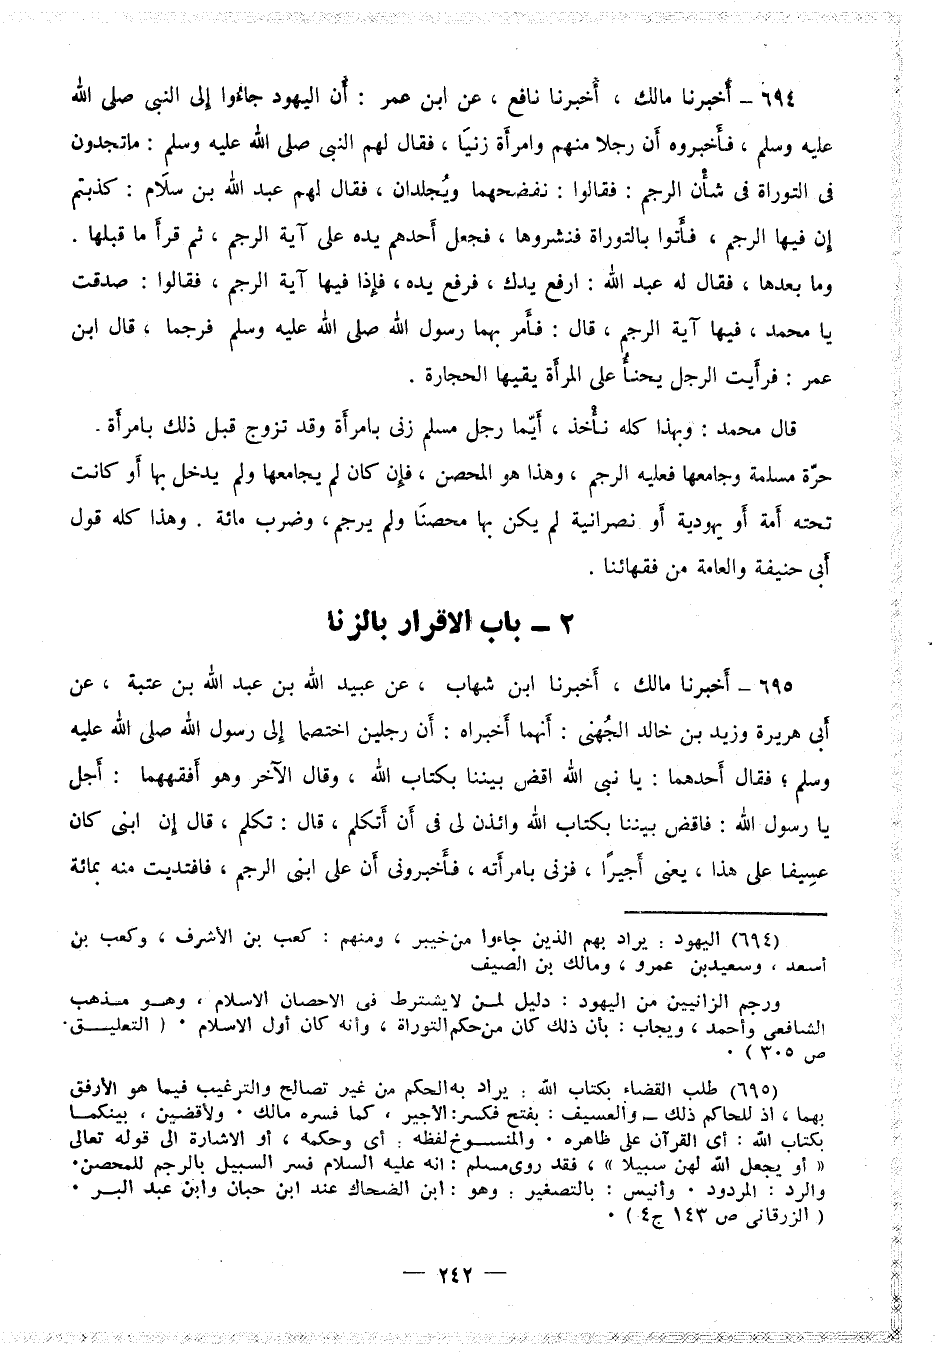 ٦٩٤ – أخبرنا مالك ، أخبرنا نافع ، عن ابن عمر : أن اليهود جاءُوا إلى النبى صلى الله
عليه وسلم ، فأخبروه أن رجلا منهم وامرأة زنيَا ، فقال لهم النبى صلى الله عليه وسلم : ماتجدون
فى التوراة فى شأْن الرجم : فقالوا : نفضحهما ويُجلدان ، فقال لهم عبد الله بن سلَام : كذبتم
إن فيها الرجم ، فأَتوا بالتوراة فنشروها ، فجعل أحدهم يده على آية الرجم ، ثم قرأ ما قبلها .
وما بعدها ، فقال له عبد الله : ارفع يدك ، فرفع يده ، فإذا فيها آية الرجم ، فقالوا : صدقت
يا محمد ، فيها آية الرجم ، قال : فأَمر بهما رسول الله صلى الله عليه وسلم فرجما ، قال ابن
عمر : فرأَيت الرجل يحنأُ على المرأَة يقيها الحجارة .
قال محمد : وبهذا كله نأْخذ ، أَيّما رجل مسلم زنى بامرأَة وقد تزوج قبل ذلك بامرأَة .
حرّة مسلمة وجامعها فعليه الرجم ، وهذا هو المحصن ، فإن كان لم يجامعها ولم يدخل بها أو كانت
تحته أمة أَو يهودية أَو نصرانية لم يكن بها محصنًا ولم يرجم ، وضرب مائة . وهذا كله قول
أَبى حنيفة والعامة من فقهائنا .
٢ – باب الاقرار بالزنا
٦٩٥ – أَخبرنا مالك ، أَخبرنا ابن شهاب ، عن عبيد الله بن عبد الله بن عتبة ، عن
أَبى هريرة وزيد بن خالد الجُهنى : أَنهما أخبراه : أن رجلين اختصما إلى رسول الله صلى الله عليه
وسلم ؛ فقال أحدهما : يا نبى الله اقض بيننا بكتاب الله ، وقال الآخر وهو أفقههما : أجل
يا رسول الله : فاقض بيننا بكتاب الله وائذن لى فى أن أَتكلم ، قال : تكلم ، قال إن ابنى كان
عسِيفا على هذا ، يعنى أَجيرًا ، فزنى بامرأته ، فأَخبرونى أن على ابنى الرجم ، فافتديت منه بمائة
(٦٩٤) اليهود : يراد بهم الذين جاءوا من خيبر ، ومنهم : كعب بن الأشرف ، وكعب بن
أسعد ، وسعيدبن عمرو ، ومالك بن الصيف
ورجم الزانيين من اليهود : دليل لمن لايشترط فى الاحصان الاسلام ، وهو مذهب
الشافعى وأحمد ، ويجاب : بأن ذلك كان من حكم التوراة ، وأنه كان أول الاسلام ٠ ( التعليق
ص ٣٠٥ ) ٠
(٦٩٥) طلب القضاء بكتاب الله : يراد به الحكم من غير تصالح والترغيب فيما هو الأرفق
بهما ، اذ للحاكم ذلك – والعسيف : بفتح فكسر: الأجير ، كما فسره مالك ٠ ولأقضين ، بينكما
بكتاب الله : أى القرآن على ظاهره ٠ والمنسوخ لفظه : أى وحكمه ، أو الاشارة الى قوله تعالى
« أو يجعل الله لهن سبيلا » ، فقد روى مسلم : انه عليه السلام فسر السبيل بالرجم للمحصن٠
والرد : المردود ٠ وأنيس : بالتصغير : وهو : ابن الضحاك عند ابن حبان وابن عبد البر ٠
( الزرقانى ص ١٤٣ ج٤ ) ٠
— ٢٤٢ —